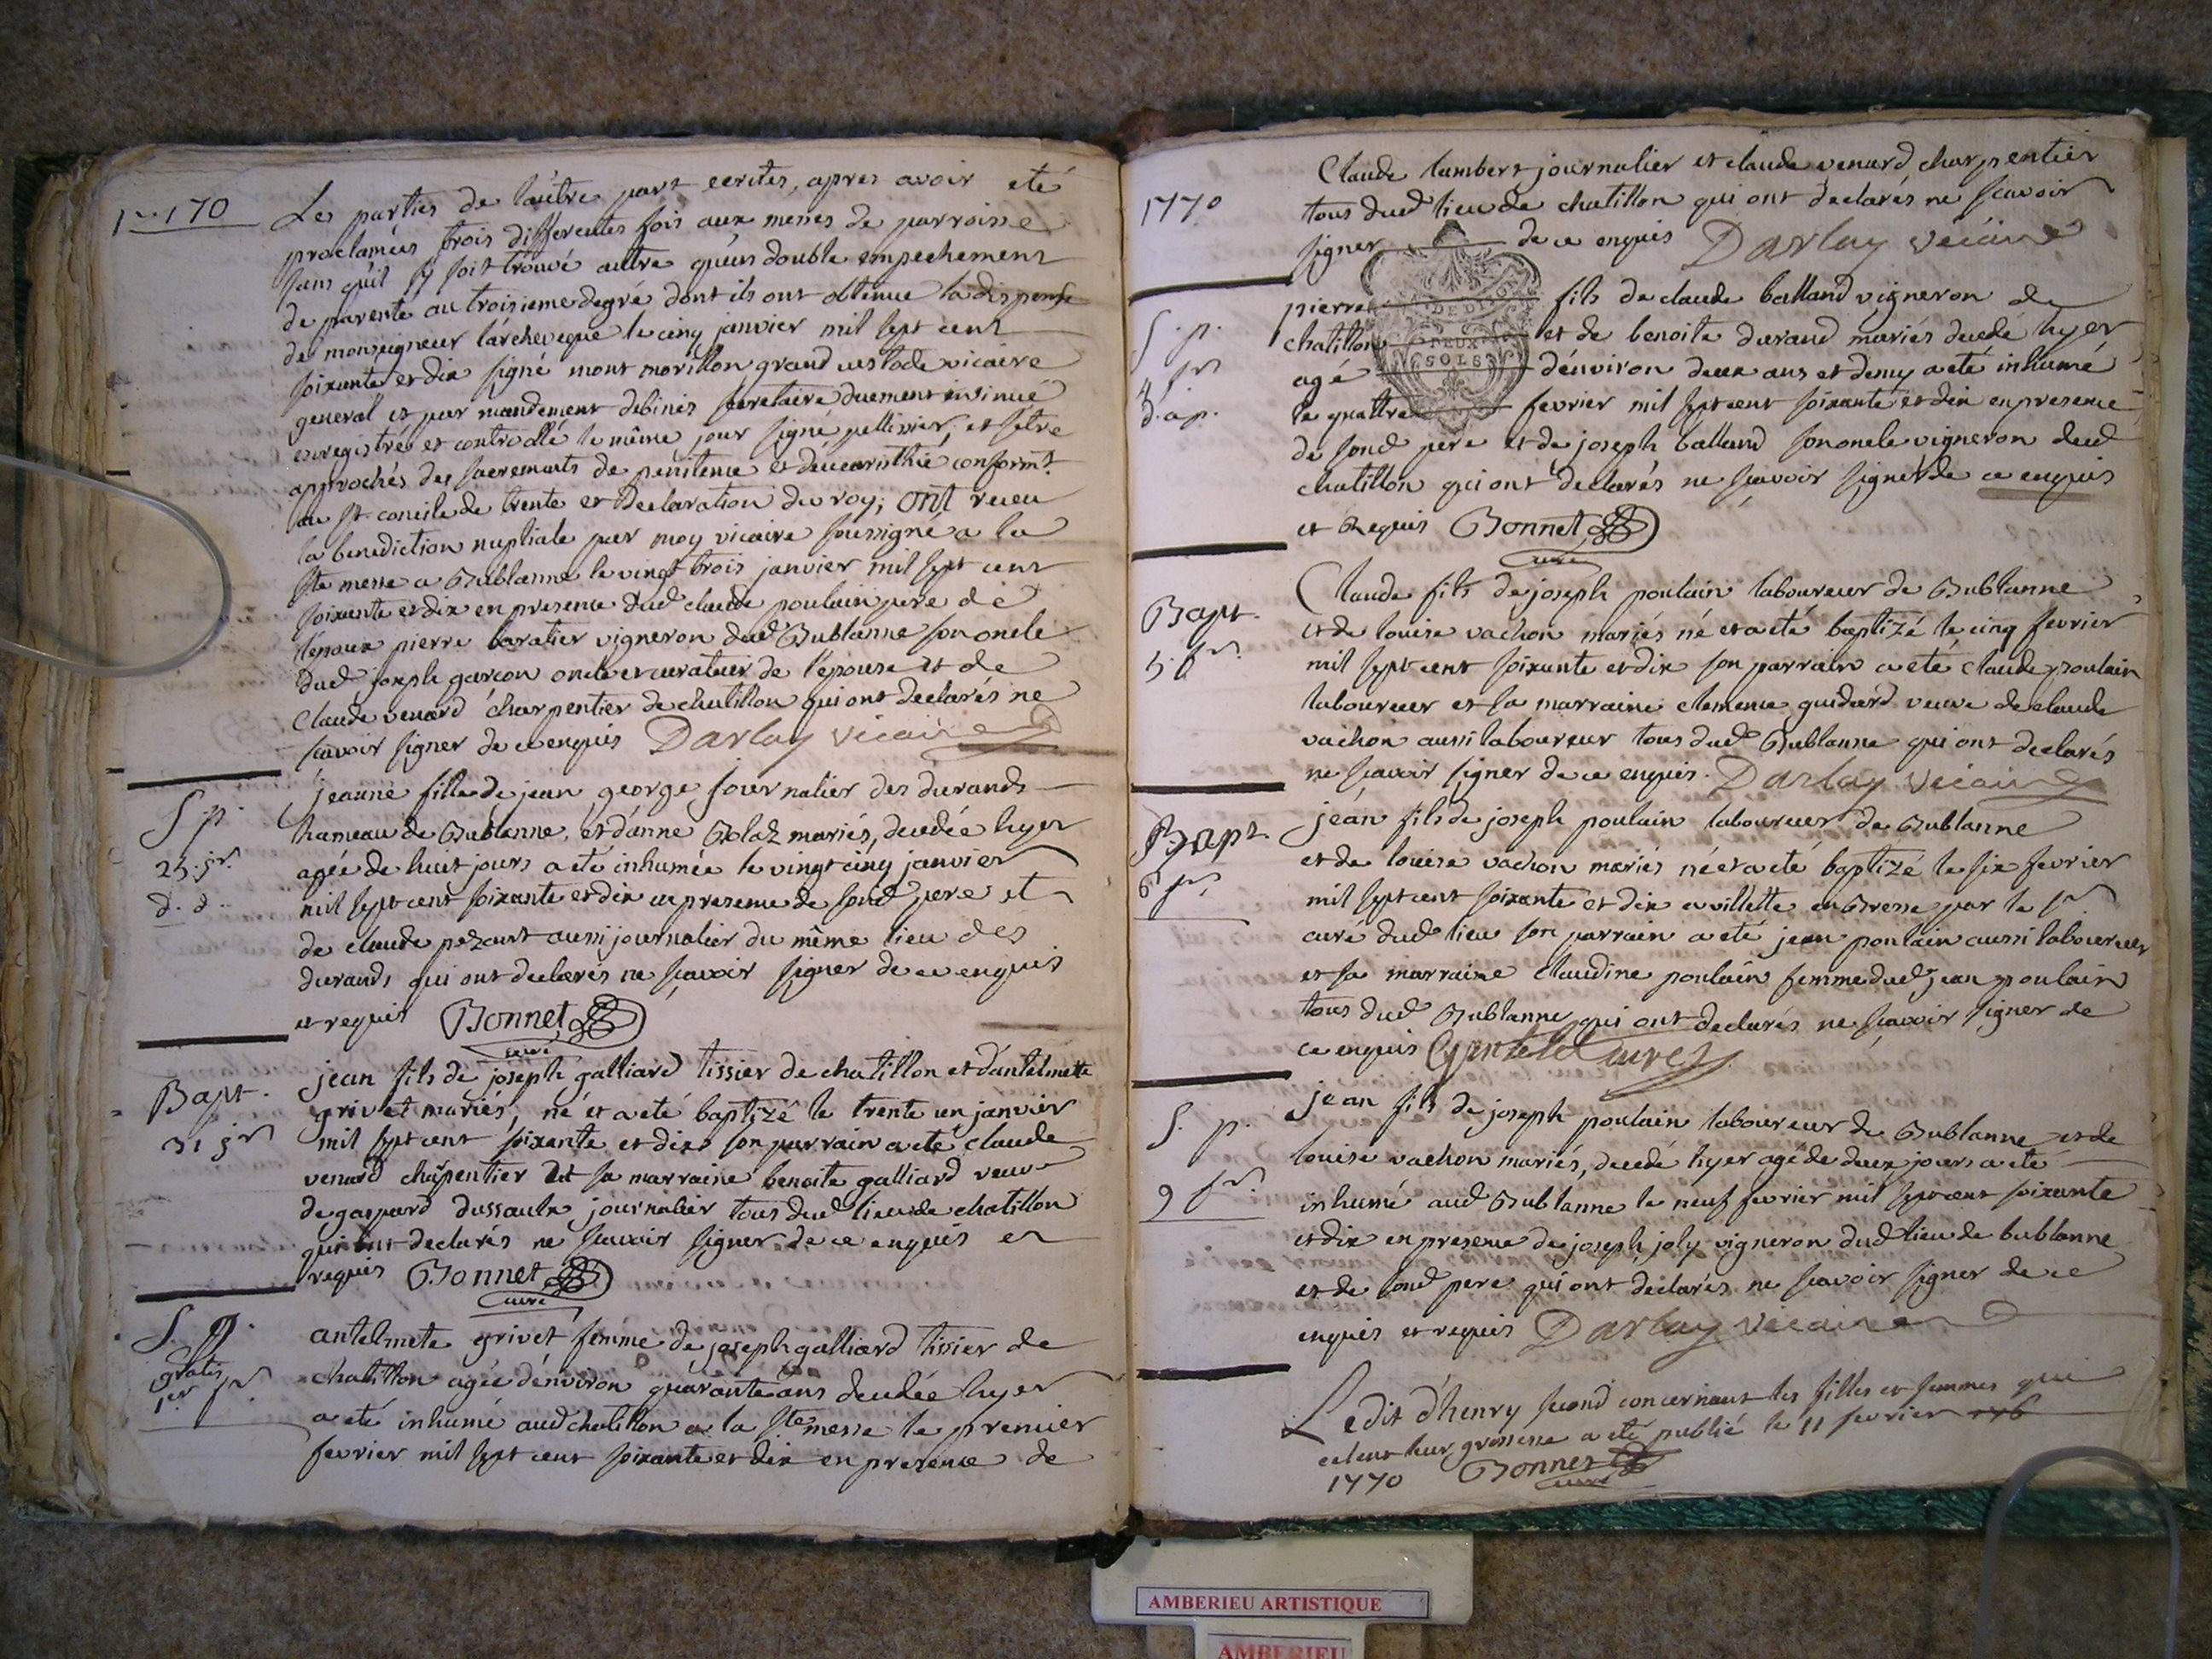 1770
Les parties de l'autre part ecrites, apres avoir eté
proclamées trois differentes fois aux messes de parroisse
sans qu'il s'y soit trouvé autre qu'un double empechement
de parenté au troisieme degré dont ils ont obtenue la dispense
de monseigneur l'archeveque le cinq janvier mil sept cent
soixante et dix signé mont morillon grand custode vicaire
general et par mandement debinis secretaire duement insinué
enregistrée et controllé le même jour signé pellissier, et s'etre
approchés des sacrements de penitence et d'eucaristhie conformt
au st concile de trente et declaration du roy; ont receu
la benediction nuptiale par moy vicaire soussigné a la
ste messe a Bublanne le vingt trois janvier mil sept cent
soixante et dix en presence dud claude poulain pere de
l'epoux pierre baratier vigneron dud Bublanne son oncle
dud joseph garcon oncle et curateur de l'epouse et de
Claude venard charpentier de chatillon qui ont declarés ne
scavoir signer de ce enquis Darlay vicaire
S. p.
25. jr
d. d.
jeanne fille de jean george journalier des durands
hameau de Bublanne, et d'anne Blaz mariés, decedée hyer
agée de huit jours a eté inhumée le vingt cinq janvier
mil sept cent soixante et dix en presence de sond pere et
de claude pezant aussi journalier du même lieu des
durands qui ont declarés ne scavoir signer de ce enquis
et requis Bonnet
curé
Bapt.
31 jr
jean fils de joseph galliard tissier de chatillon et d'antelmette
grivet mariés, né et a eté baptizé le trente un janvier
mil sept cent soixante et dix son parrain a eté claude
venard charpentier et sa marraine benoite galliard veuve
de gaspard dussault journalier tous dud lieu de chatillon
qui ont declarés ne scavoir signer de ce enquis et
requis Bonnet
curé
S. p.
gratis
1er fr
antelmete grivet femme de joseph galliard tissier de
chatillon agée d'environ quarante ans decedée hyer
a eté inhumé aud chatillon a la ste messe le premier
fevrier mil sept cent soixante et dix en presence de
1770
Claude lambert journalier et claude venard charpentier
tous dud lieu de chatillon qui ont declarés ne scavoir
signer de ce enquis Darlay vicaire
DEUX
SOLS
S. p.
4 fr
d. ap.
pierre fils de claude balland vigneron de
chatillon et de benoite durand mariés decedé hyer
agé d'environ deux ans et demy a eté inhumé
le quattre fevrier mil sept cent soixante et dix en presence
de sond pere et de joseph balland son oncle vigneron dud
chatillon qui ont declarés ne scavoir signer de ce enquis
et requis Bonnet
curé
Bapt.
5. fr
Claude fils de joseph poulain laboureur de Bublanne
et de louise vachon mariés né et a eté baptizé le cinq fevrier
mil sept cent soixante et dix son parrain a eté claude poulain
laboureur et sa marraine clemence guidard veuve de claude
vachon aussi laboureur tous dud Bublanne qui ont declarés
ne scavoir signer de ce enquis. Darlay vicaire
Bapt.
6 fr
jean fils de joseph poulain laboureur de Bublanne
et de louise vachon mariés né et a eté baptizé le six fevrier
mil sept cent soixante et dix a villette en Bresse par le sr
curé dud lieu son parrain a eté jean poulain aussi laboureur
et sa marraine claudine poulain femme dud jean poulain
tous dud Bublanne qui ont declarés ne scavoir signer de
ce enquis curé
S. p.
9 fr.
jean fils de joseph poulain laboureur de Bublanne et de
louise vachon mariés, decedé hyer agé de deux jours a eté
inhumé aud Bublanne le neuf fevrier mil sept cent soixante
et dix en presence de joseph joly vigneron dud lieu de bublanne
et de sond pere qui ont declarés ne scavoir signer de ce
enquis et requis Darlay vicaire
L'edit d'henry second concernant les filles et femmes qui
celent leur grossesse a eté publié le 11 fevrier 176
1770 Bonnet
curé
AMBERIEU ARTISTIQUE
AMBERIEU